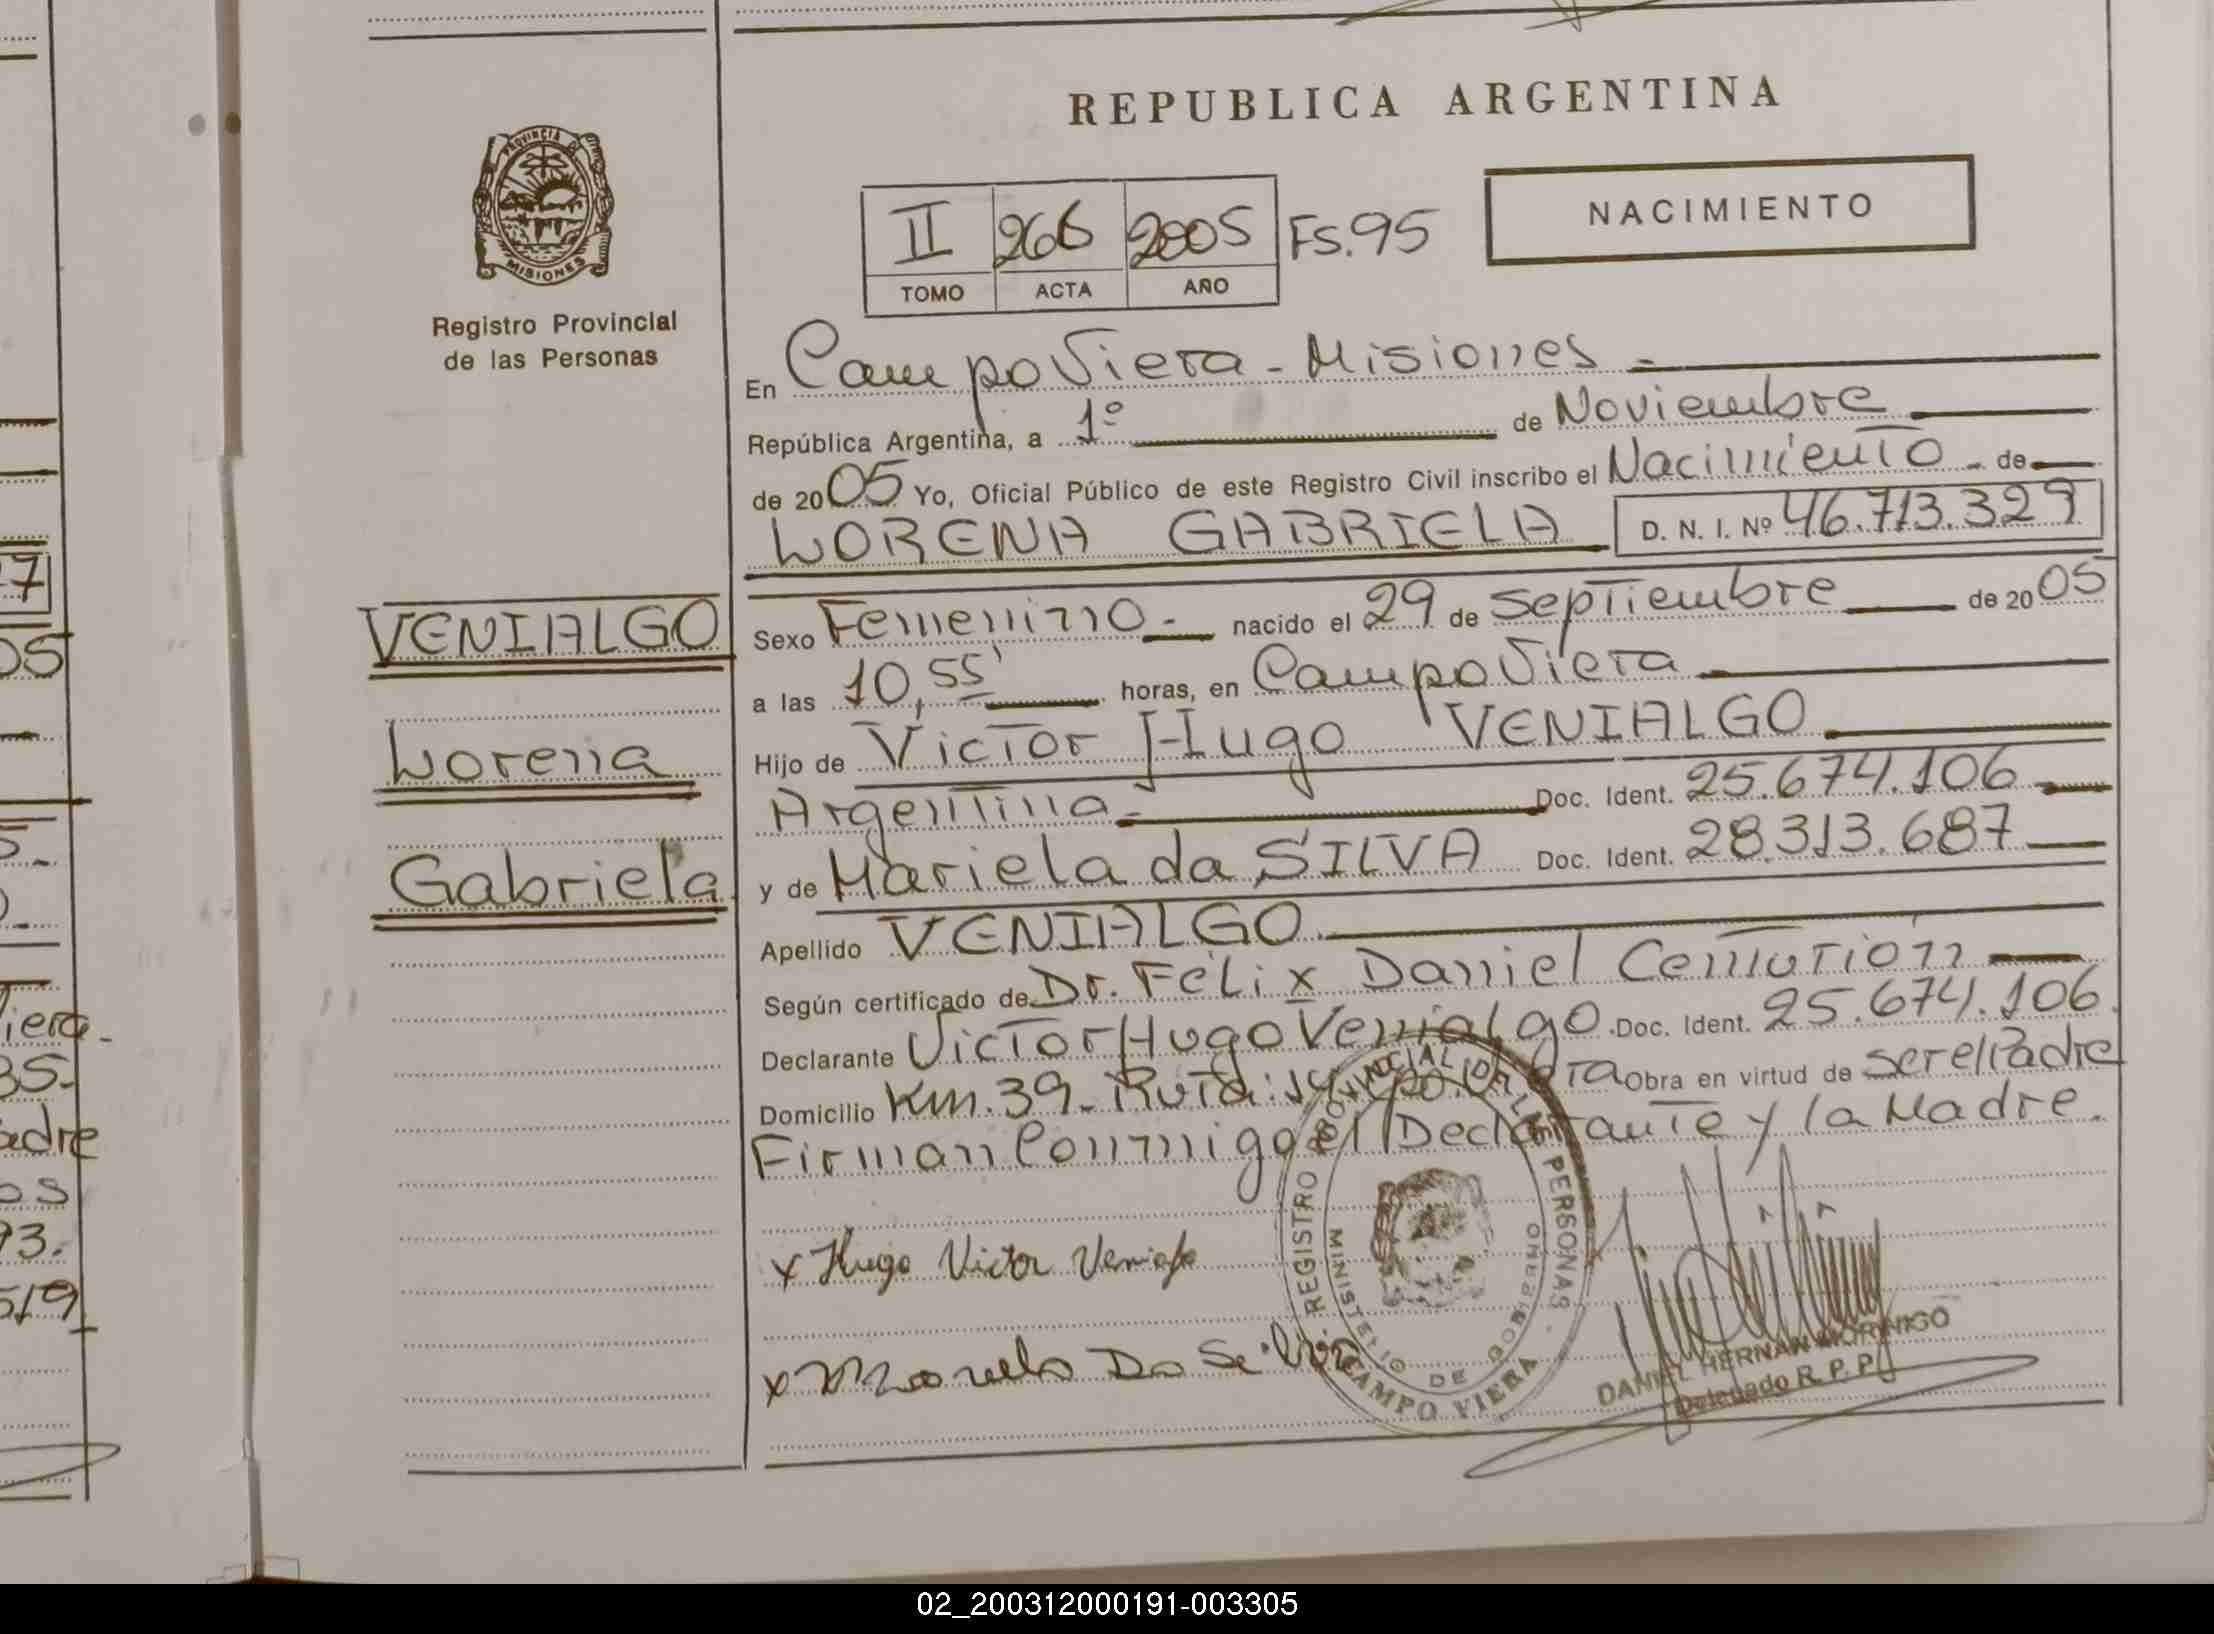 REPUBLICA ARGENTINA
PROVINCIA DE
MISIONES
Registro Provincial
de las Personas
II 266 2005 Fs.95
TOMO ACTA AÑO
NACIMIENTO
En Campo Viera - Misiones -
República Argentina, a 1º de Noviembre
de 2005 Yo, Oficial Público de este Registro Civil inscribo el Nacimiento - de
LORENA GABRIELA D. N. I. Nº 46.713.329
VENIALGO
Lorena
Gabriela
Sexo Femenino - nacido el 29 de Septiembre de 2005
a las 10,55' horas, en Campo Viera
Hijo de Victor Hugo VENIALGO
Argentina - Doc. Ident. 25.674.106
y de Mariela da SILVA Doc. Ident. 28.313.687
Apellido VENIALGO
Según certificado de Dr. Félix Daniel Centurión
Declarante Victor Hugo Venialgo Doc. Ident. 25.674.106
Domicilio Km. 39 - Ruta: 14 Obra en virtud de ser el Padre
Firman Conmigo el Declarante y la Madre.
x Hugo Victor Venialgo
x Mariela Da Silva
REGISTRO PROVINCIAL DE LAS PERSONAS
MINISTERIO DE GOBIERNO
CAMPO VIERA
DANIEL HERNAN MORINIGO
Delegado R. P. P.
7
05
iera -
35-
adre
os
93.
519
02_200312000191-003305